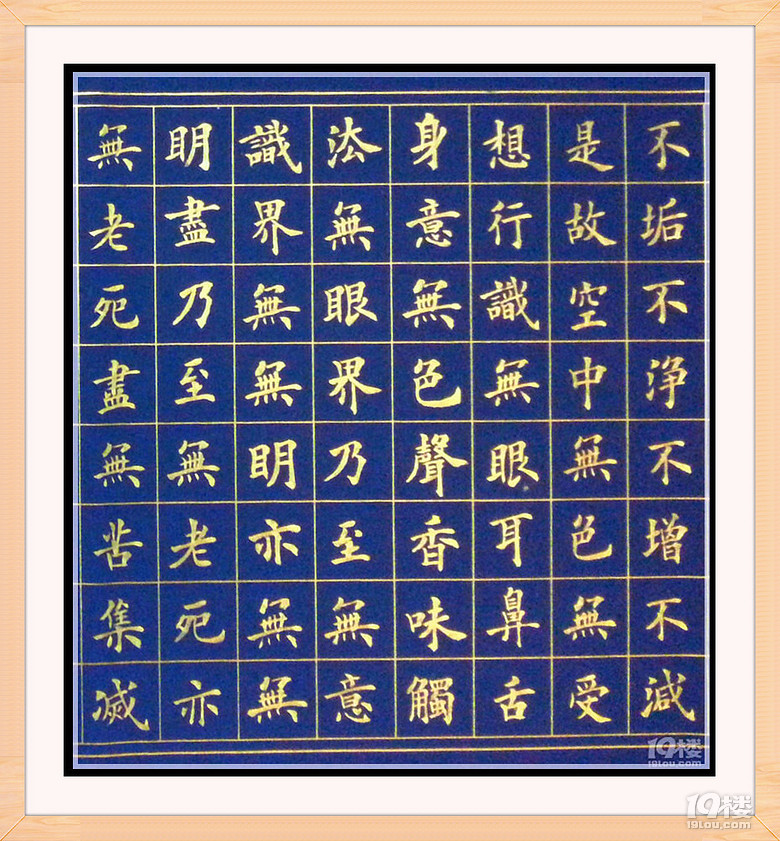 不垢不浄不增不減
是故空中無色無受
想行識無眼耳鼻舌
身意無色聲香味觸
法無眼界乃至無意
識界無無明亦無無
明盡乃至無老死亦
無老死盡無苦集滅
19楼
19lou.com
19楼
19lou.com